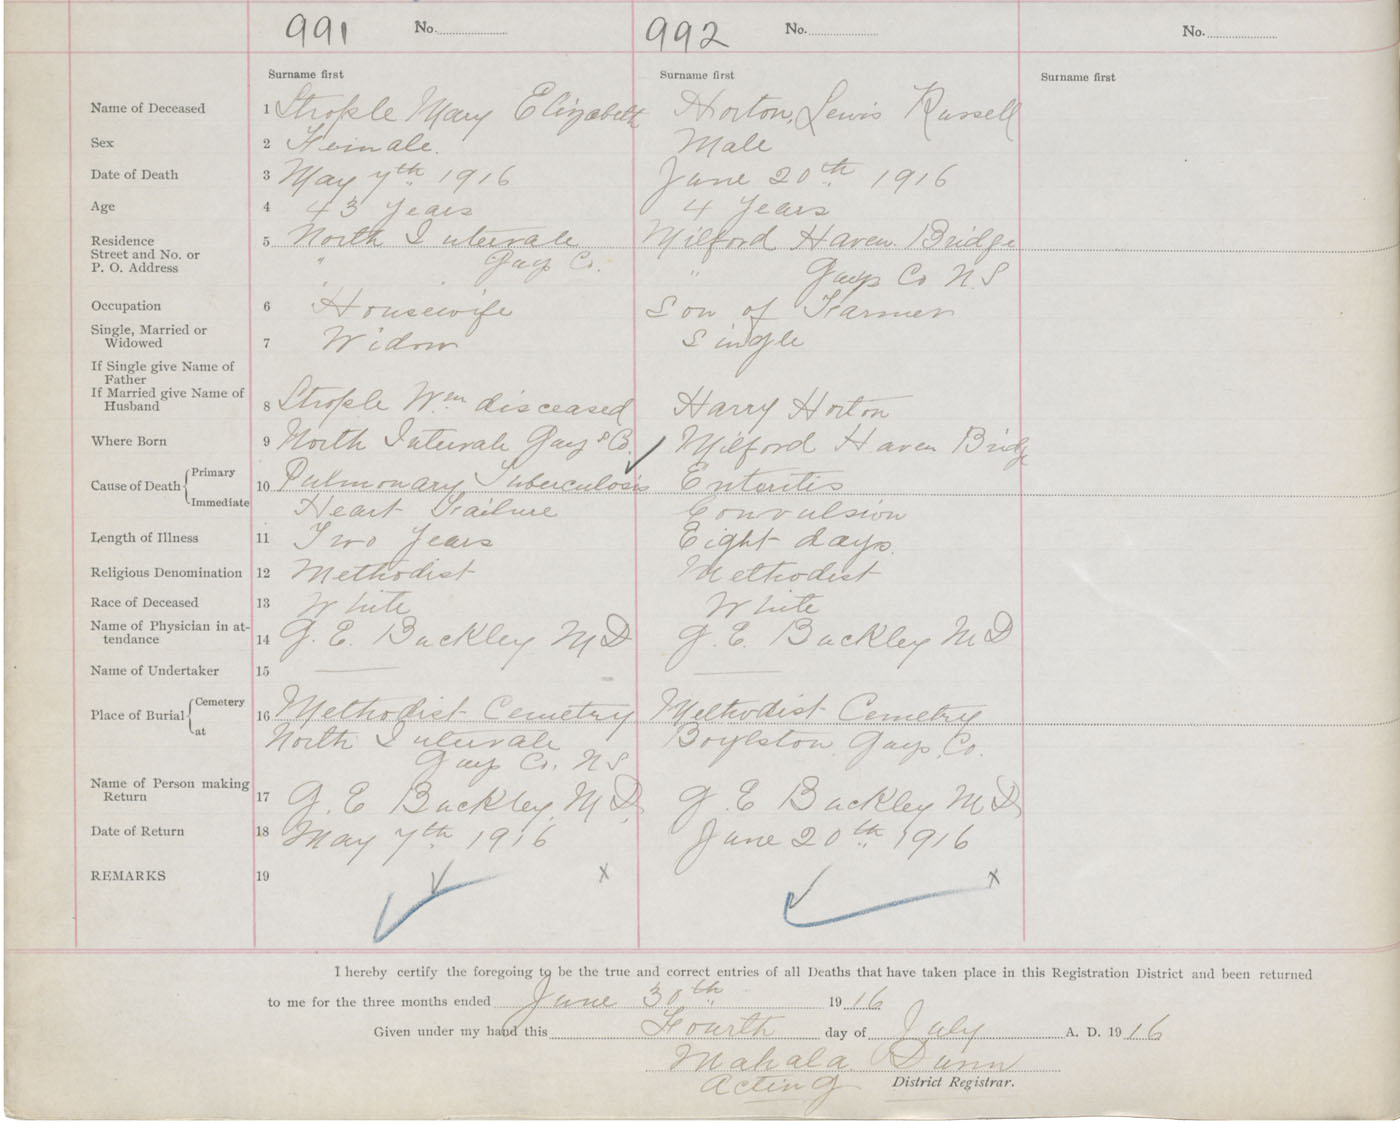 991 No. 992 No. No.
Surname first Surname first Surname first
Name of Deceased 1 Strople Mary Elizabeth Horton, Lewis Russell
Sex 2 Female. Male
Date of Death 3 May 7th 1916 June 20th 1916
Age 4 43 Years 4 Years
Residence 5 North Intervale Milford Haven Bridge
Street and No. or " Guys Co. " Guys Co N.S
P. O. Address
Occupation 6 Housewife Son of Farmer
Single, Married or
Widowed 7 Widow Single
If Single give Name of
Father
If Married give Name of
Husband 8 Strople Wm disceased Harry Horton
Where Born 9 North Intervale Guys Co. Milford Haven Bridg
Cause of Death Primary 10 Pulmonary Tuberculosis Enteritis
Immediate Heart Failure Convulsion
Length of Illness 11 Two Years Eight days.
Religious Denomination 12 Methodist Methodist
Race of Deceased 13 White White
Name of Physician in at-
tendance 14 G. E. Buckley M D G. E. Buckley M D
Name of Undertaker 15
Place of Burial Cemetery 16 Methodist Cemetery Methodist Cemetry
at North Intervale Boylston Guys. Co.
Guys Co. N S
Name of Person making
Return 17 G. E Buckley, M D, G. E Buckley M D,
Date of Return 18 May 7th 1916 June 20th 1916
REMARKS 19 x x
I hereby certify the foregoing to be the true and correct entries of all Deaths that have taken place in this Registration District and been returned
to me for the three months ended June 30th 1916
Given under my hand this Fourth day of July A. D. 1916
Mahala Dunn
Acting District Registrar.